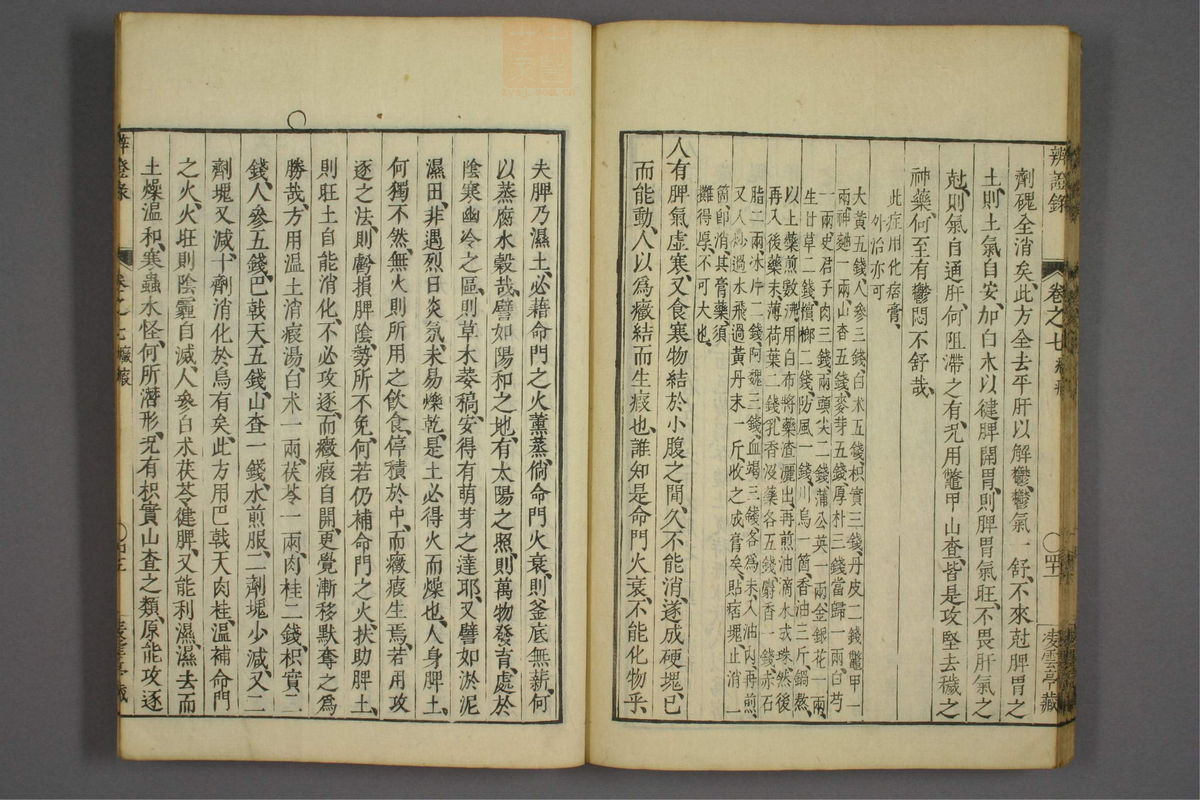 辨證錄
卷之七
凌雲亭藏
劑磈全消矣、此方全去平肝以解鬱、鬱氣一舒、不來尅脾胃之
土、則土氣自安、加白朮以健脾開胃、則脾胃氣旺、不畏肝氣之
尅、則氣自通肝、何阻滯之有、况用鼈甲山查、皆是攻堅去穢之
神藥、何至有鬱悶不舒哉、
此症用化痞膏、
外治亦可
大黃五錢、人參三錢、白朮五錢、枳實三錢、丹皮二錢、鼈甲一
兩、神麯一兩、山查五錢、麥芽五錢、厚朴三錢、當歸一兩、白芍
一兩、史君子肉三錢、兩頭尖二錢、蒲公英一兩、金銀花一兩、
生甘草二錢、檳榔二錢、防風一錢、川烏一箇、香油三斤、鍋熬、
以上藥煎數沸、用白布將藥渣灑出、再煎油滴水成珠、然後
再入後藥末、薄荷葉二錢、乳香沒藥各五錢、麝香一錢、赤石
脂二兩、冰片二錢、阿魏三錢、血竭三錢、各爲末、入油內、再煎、
又入炒過水飛過黃丹末一斤、收之成膏矣、貼痞塊止消一
箇卽消、其膏藥須
攤得厚、不可大也、
人有脾氣虛寒、又食寒物、結於小腹之間、久不能消、遂成硬塊、已
而能動、人以爲癥結而生瘕也、誰知是命門火衰、不能化物乎、
夫脾乃濕土、必藉命門之火薰蒸、倘命門火衰、則釜底無薪、何
以蒸腐水穀哉、譬如陽和之地、有太陽之照、則萬物發育、處於
陰寒幽冷之區、則草木萎稿、安得有萌芽之達耶、又譬如淤泥
濕田、非遇烈日炎氛、未易爍乾、是土必得火而燥也、人身脾土、
何獨不然、無火則所用之飲食、停積於中、而癥瘕生焉、若用攻
逐之法、則虧損脾陰、勢所不免、何若仍補命門之火、扶助脾土、
則旺土自能消化、不必攻逐、而癥瘕自開、更覺漸移默奪之爲
勝哉、方用溫土消瘕湯、白朮一兩、茯苓一兩、肉桂二錢、枳實二
錢、人參五錢、巴戟天五錢、山查一錢、水煎服、二劑塊少減、又二
劑塊又減、十劑消化於烏有矣、此方用巴戟天肉桂、溫補命門
之火、火旺則陰霾自滅、人參白朮茯苓、健脾、又能利濕、濕去而
土燥溫和、寒蟲水怪、何所潛形、况有枳實山查之類、原能攻逐
卷之七 癥瘕